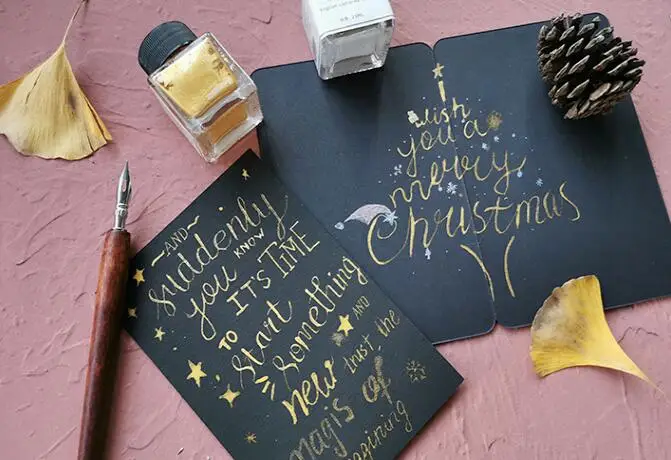 I
wish
you a
merry
Christmas
~AND~
suddenly
you KNOW
IT'S TIME
TO
start
something
new AND trust the
magis of
beginning